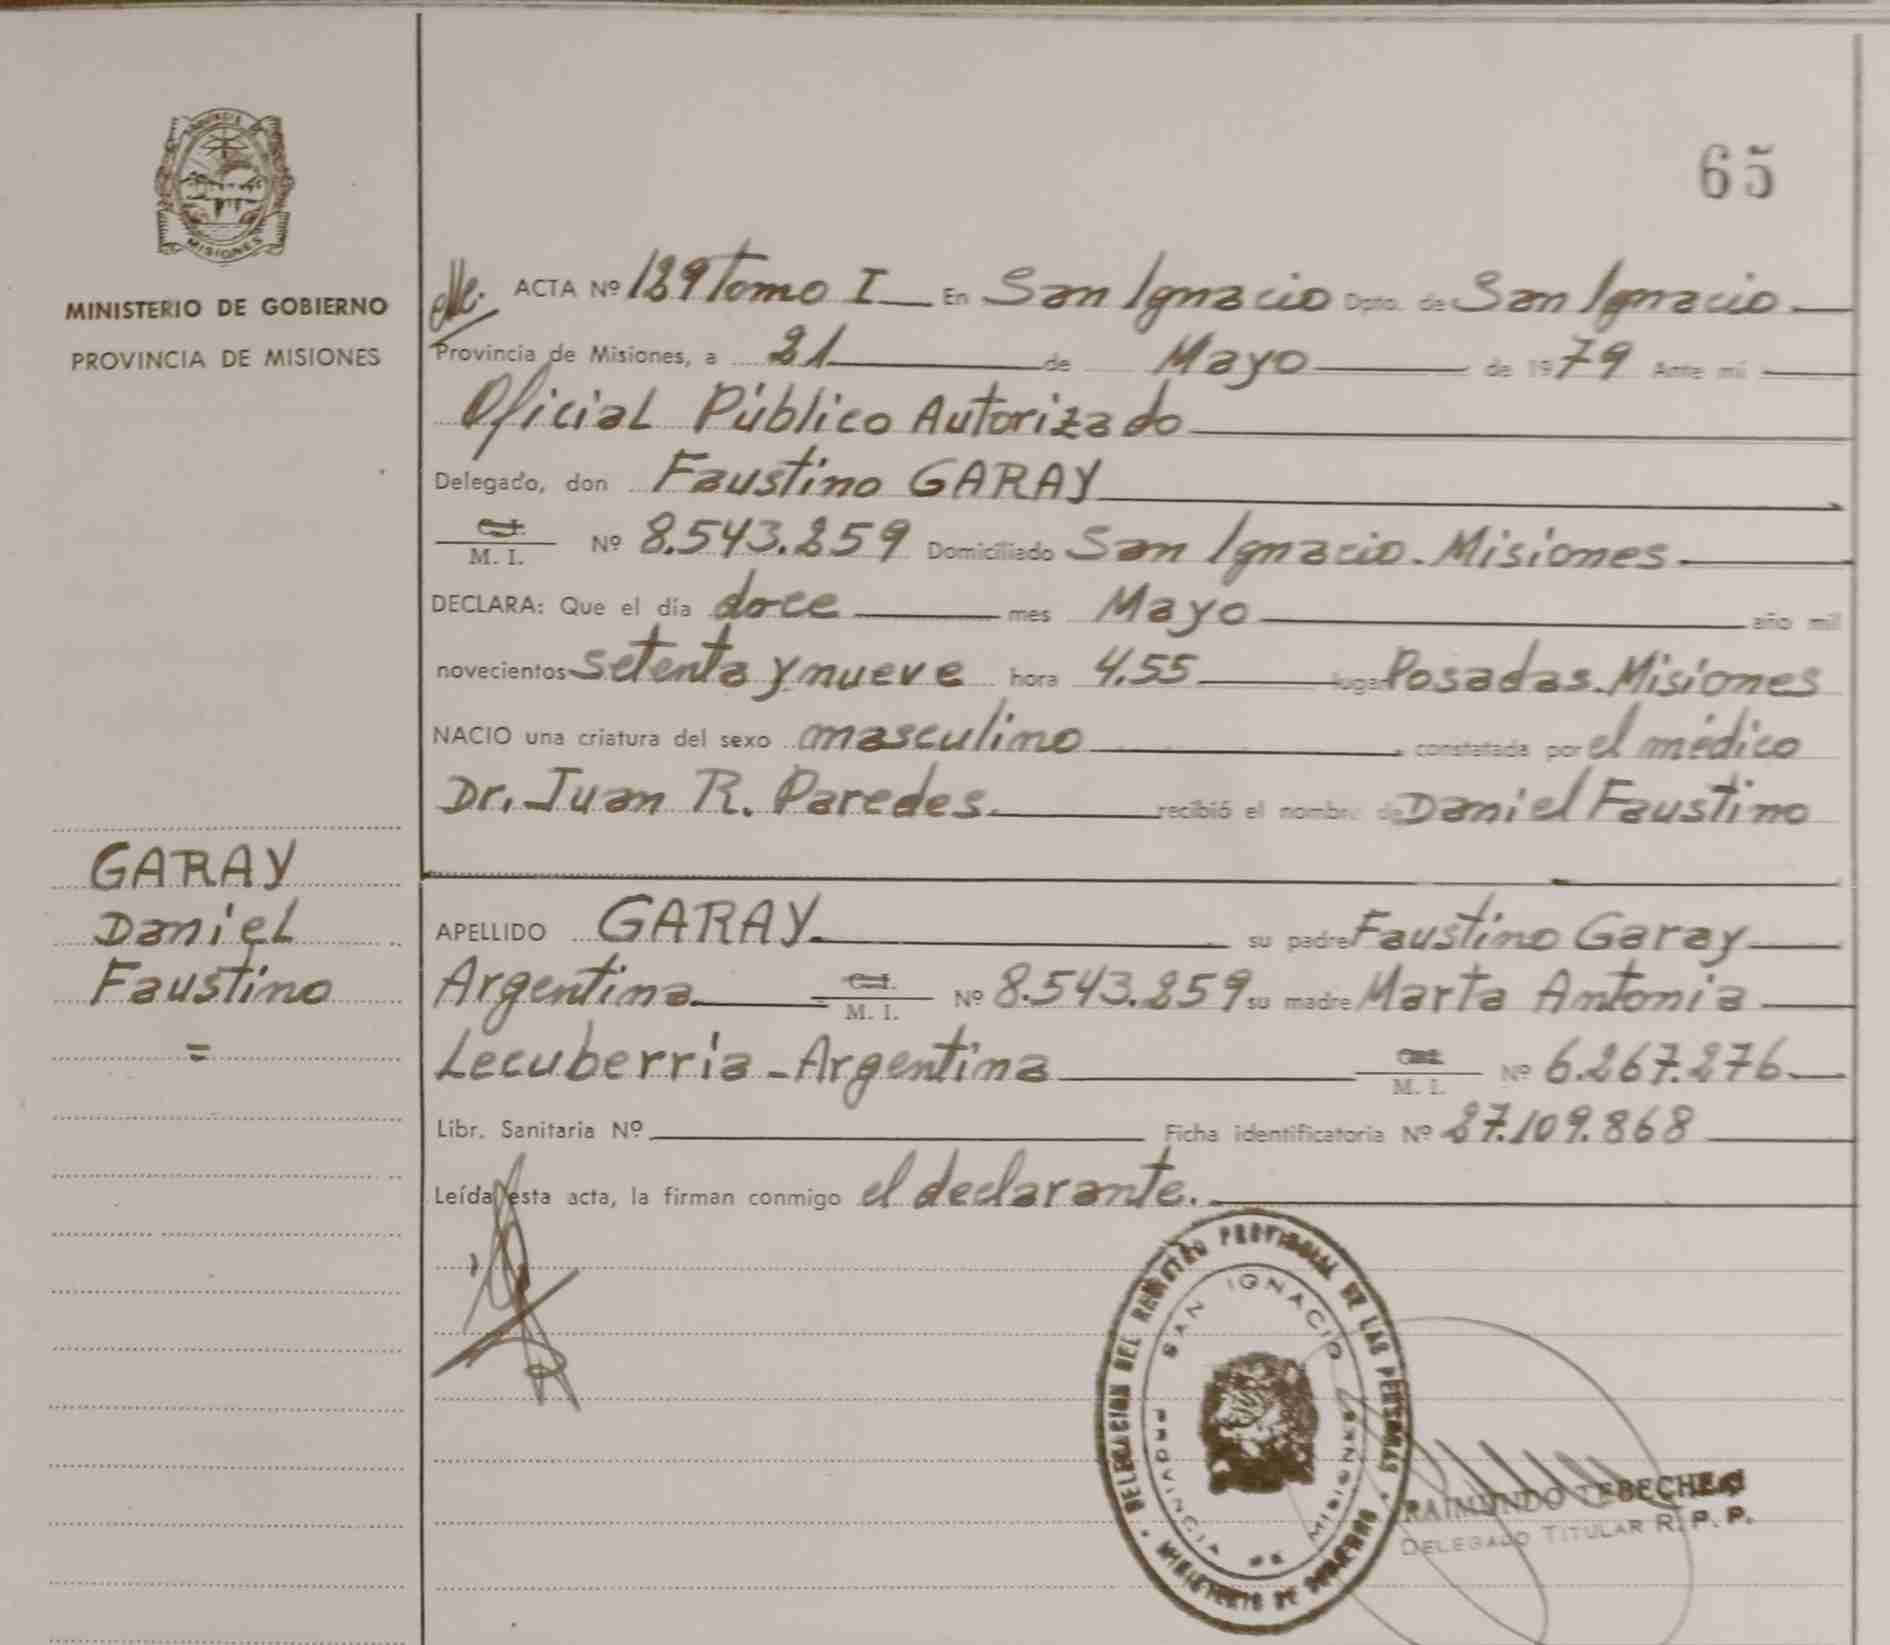 65
MISIONES
MINISTERIO DE GOBIERNO
PROVINCIA DE MISIONES
GARAY
Daniel
Faustino
=
ACTA Nº 129 Tomo I En San Ignacio Dpto. de San Ignacio
Provincia de Misiones, a 21 de Mayo de 1979 Ante mí
Oficial Público Autorizado
Delegado, don Faustino GARAY
M. I. Nº 8.543.259 Domiciliado San Ignacio. Misiones
DECLARA: Que el día doce mes Mayo año mil
novecientos setenta y nueve hora 4.55 lugar Posadas. Misiones
NACIO una criatura del sexo masculino constatada por el médico
Dr. Juan R. Paredes recibió el nombre de Daniel Faustino
APELLIDO GARAY su padre Faustino Garay
Argentina M. I. Nº 8.543.259 su madre Marta Antonia
Lecuberria - Argentina M. I. Nº 6.267.276
Libr. Sanitaria Nº Ficha identificatoria Nº 27.109.868
Leída esta acta, la firman conmigo el declarante.
DELEGACION DEL REGISTRO PROVINCIAL DE LAS PERSONAS
MINISTERIO DE GOBIERNO
SAN IGNACIO
PROVINCIA DE MISIONES
RAIMUNDO
DELEGADO TITULAR R. P. P.